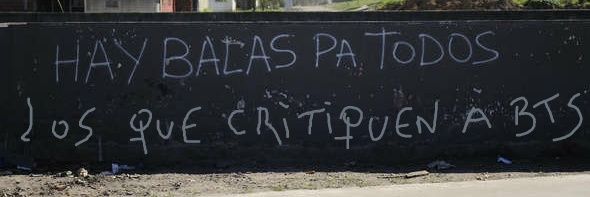 HAY BALAS PA TODOS
LOS QUE CRITIQUEN A BTS